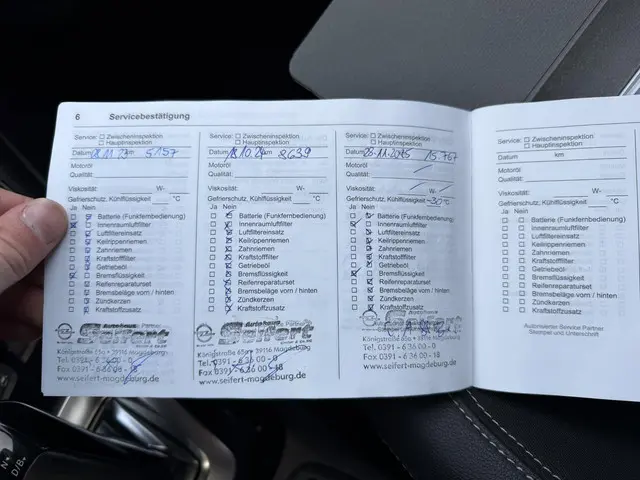 6 Servicebestätigung
Service: Zwischeninspektion
Hauptinspektion
Datum 28.11.23 km 5157
Motoröl
Qualität:
Viskosität: W-
Gefrierschutz, Kühlflüssigkeit °C
Ja Nein
Batterie (Funkfernbedienung)
Innenraumluftfilter
Luftfiltereinsatz
Keilrippenriemen
Zahnriemen
Kraftstofffilter
Getriebeöl
Bremsflüssigkeit
Reifenreparaturset
Bremsbeläge vorn / hinten
Zündkerzen
Kraftstoffzusatz
Autohaus Partner
Seifert
Königstraße 65a • 39116 Magdeburg
Tel. 0391 - 6 36 00 - 0
Fax 0391 - 6 36 00 - 18
www.seifert-magdeburg.de
Service: Zwischeninspektion
Hauptinspektion
Datum 18.10.24 km 8639
Motoröl
Qualität:
Viskosität: W-
Gefrierschutz, Kühlflüssigkeit °C
Ja Nein
Batterie (Funkfernbedienung)
Innenraumluftfilter
Luftfiltereinsatz
Keilrippenriemen
Zahnriemen
Kraftstofffilter
Getriebeöl
Bremsflüssigkeit
Reifenreparaturset
Bremsbeläge vorn / hinten
Zündkerzen
Kraftstoffzusatz
Autohaus Partner
Seifert
Königstraße 65a • 39116 Magdeburg
Tel. 0391 - 6 36 00 - 0
Fax 0391 - 6 36 00 - 18
www.seifert-magdeburg.de
Service: Zwischeninspektion
Hauptinspektion
Datum 28.11.2025 15.767
Motoröl
Qualität:
Viskosität: W-
Gefrierschutz, Kühlflüssigkeit -30°C
Ja Nein
Batterie (Funkfernbedienung)
Innenraumluftfilter
Luftfiltereinsatz
Keilrippenriemen
Zahnriemen
Kraftstofffilter
Getriebeöl
Bremsflüssigkeit
Reifenreparaturset
Bremsbeläge vorn / hinten
Zündkerzen
Kraftstoffzusatz
Autohaus
Seifert
Königstraße 65a • 39116 Magdeburg
Tel. 0391 - 6 36 00 - 0
Fax 0391 - 6 36 00 - 18
www.seifert-magdeburg.de
Service: Zwischeninspektion
Hauptinspektion
Datum km
Motoröl
Qualität:
Viskosität: W-
Gefrierschutz, Kühlflüssigkeit °C
Ja Nein
Batterie (Funkfernbedienung)
Innenraumluftfilter
Luftfiltereinsatz
Keilrippenriemen
Zahnriemen
Kraftstofffilter
Getriebeöl
Bremsflüssigkeit
Reifenreparaturset
Bremsbeläge vorn / hinten
Zündkerzen
Kraftstoffzusatz
Autorisierter Service Partner
Stempel und Unterschrift
N
D/B